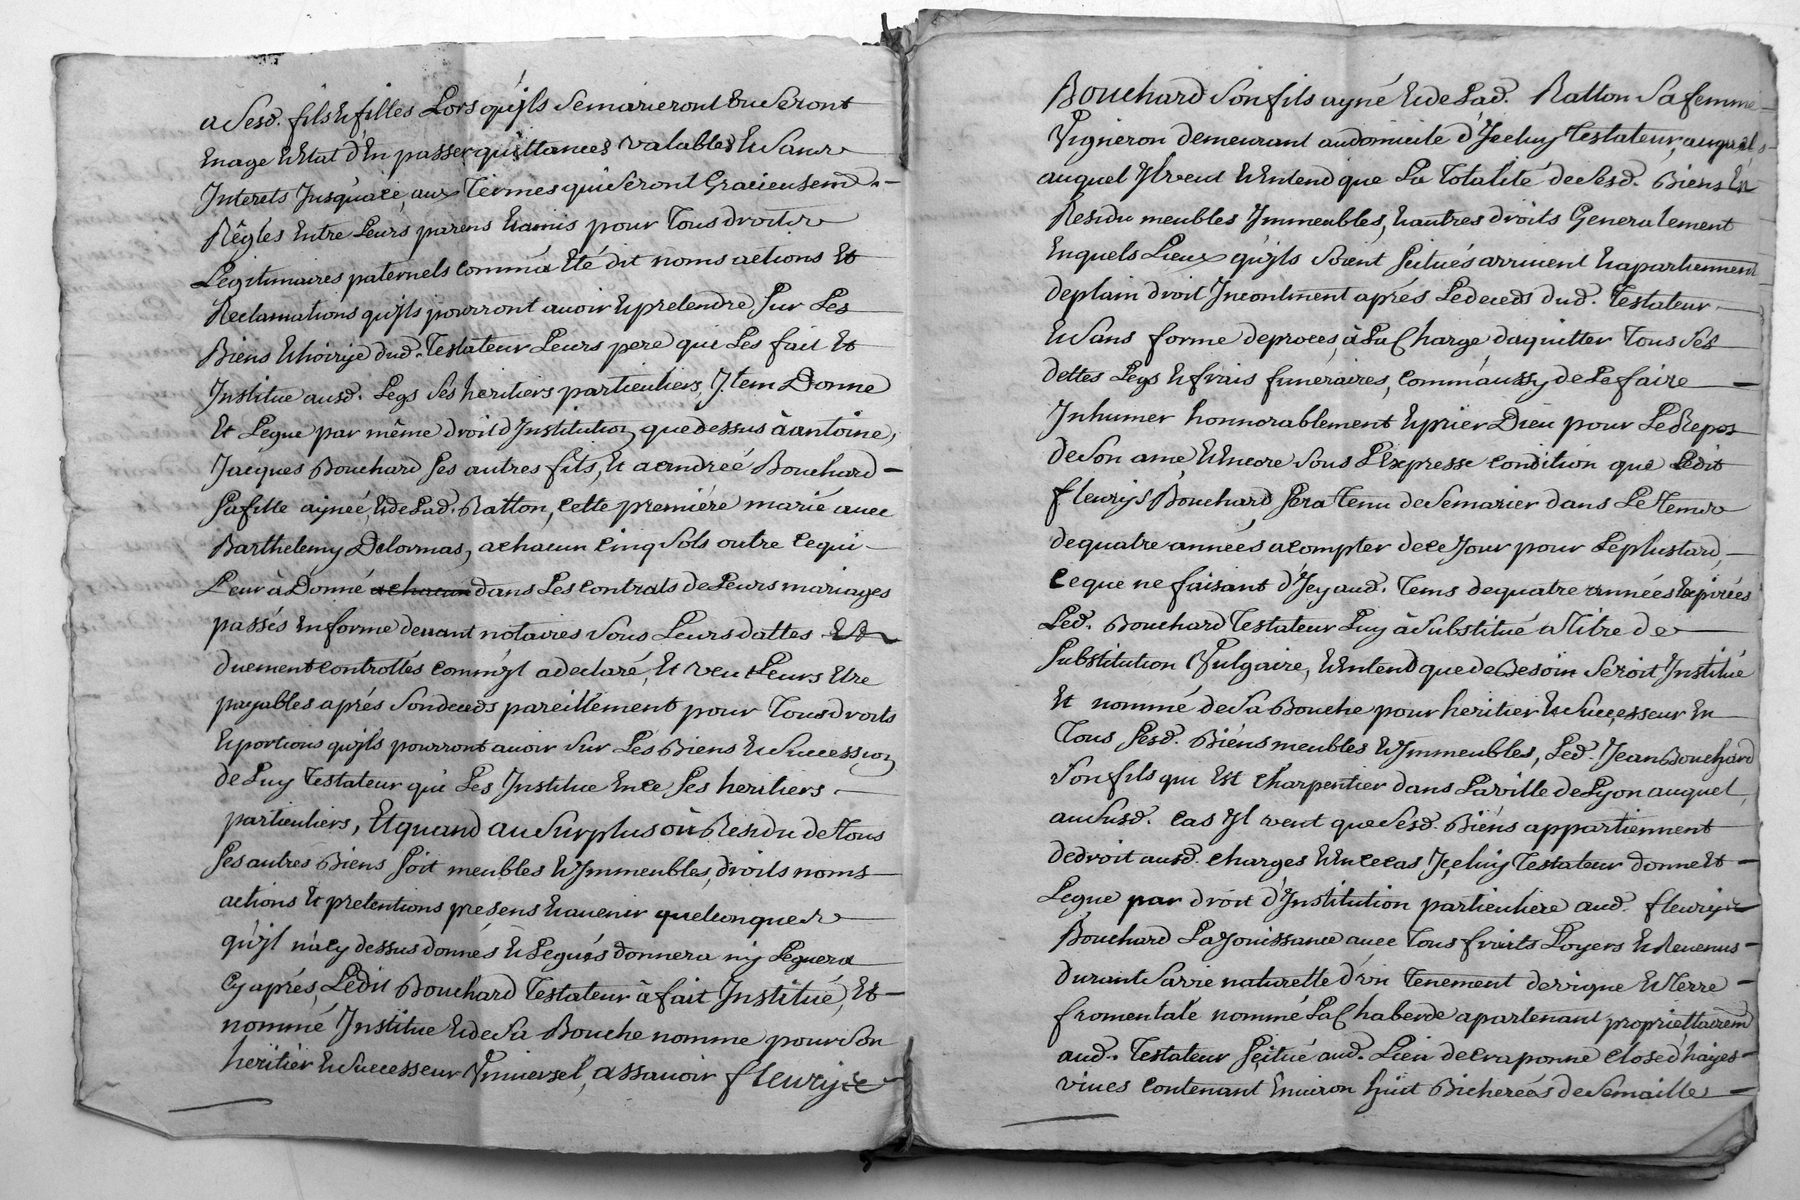 a Sesd. fils & filles Lors qu'jls Semarieront ou Seront
En age & Etat d'En passer quittances valables & Sans
Interets Jusqu'a ce, aux Termes qui Seront Gracieusemt.
Réglés Entre Leurs parens & amis pour Tous droits
Legitimaires paternels comm'a Eté dit noms actions Et
Reclamations qu'jls pourront avoir & pretendre Sur Les
Biens & hoirije dud. Testateur Leurs pere qui Les fait Et
Institue ausd. Legs Sés heritiers particuliers, J.tem Donne
Et Legue par même droit d'Institution que dessus à antoine,
Jacques Bouchard Ses autres fils, & a andreé Bouchard
Sa fille aynéé, & de Lad. Ratton, cette premiére marié avec
Barthelemy Delormas, a chacun Cinq Sols outre ce qui
Leur à Donné a chacun dans Les contrats de Leurs mariages
passés En forme devant notaires Sous Leurs dattes Et
duement controllés comm'jl a declaré, Et veut Leurs Etre
payables aprés Son deceds pareillement pour Tous droits
& portions qu'jls pourront avoir Sur Les Biens & Succession
de Luy Testateur qui Les Institue En ce Ses heritiers
particuliers, Et quand au Surplus où Residu de Tous
Ses autres Biens Soit meubles & Jmmeubles, droits noms
actions & pretentions presens & avenir quelconques
qu'jl n'a cy dessus donnés & Legués donnera nij Leguera
Cy aprés, Ledit Bouchard Testateur à fait Institué, Et
nommé Institue & de Sa Bouche nomme pour Son
heritier & Successeur Vniversel, assavoir fleurijs
Bouchard Son fils ayné & de Lad. Ratton Sa femme
Vigneron demeurant au domicile d'Jceluy Testateur, auquel
auquel Jl veut & Entend que La Totalité de Sesd. Biens En
Residu meubles Jmmeubles, & autres droits Generalement
En quels Lieux qu'jls Soient Scitués arrivent & apartiennent
de plain droit Incontinent aprés Le deceds dud. Testateur
& Sans forme de proces, à La Charge d'aquitter Tous Sés
dettes Legs & frais funéraires, comm'aussy de Le faire
Inhumer honnorablement & prier Dieu pour Le Repos
de Son ame, & Encore Sous L'Expresse condition que Ledit
fleurijs Bouchard Sera Tenu de Se marier dans Le Tems
de quatre années a compter de ce Jour pour Le plustard,
Ce que ne faisant d'Jcy aud. Tems de quatre années Expirées
Led. Bouchard Testateur Luy à Substitué a Titre de
Substitution Vulgaire, & Entend que de Besoin Seroit Institué
Et nommé de Sa Bouche pour heritier & Successeur En
Tous Sesd. Biéns meubles & Jmmeubles, Led. Jean Bouchard
Son fils qui Est Charpentier dans La ville de Lyon auquel,
au Susd. Cas Jl veut que Sesd. Biéns appartiennent
de droit ausd. charges & En ce cas Jceluy Testateur donne Et
Legue par droit d'Institution particuliere aud. fleurijs
Bouchard La Jouissance avec Tous fruits Loyers & Revenus
durant Sa vie naturelle d'vn Tenement de vigne & Terre
fromentale nommé La Chaberde apartenant propriettairemt
aud. Testateur Scitué aud. Lieu de Craponne Close d'hayes
vives contenant Environ huit Bichereés de Semaille